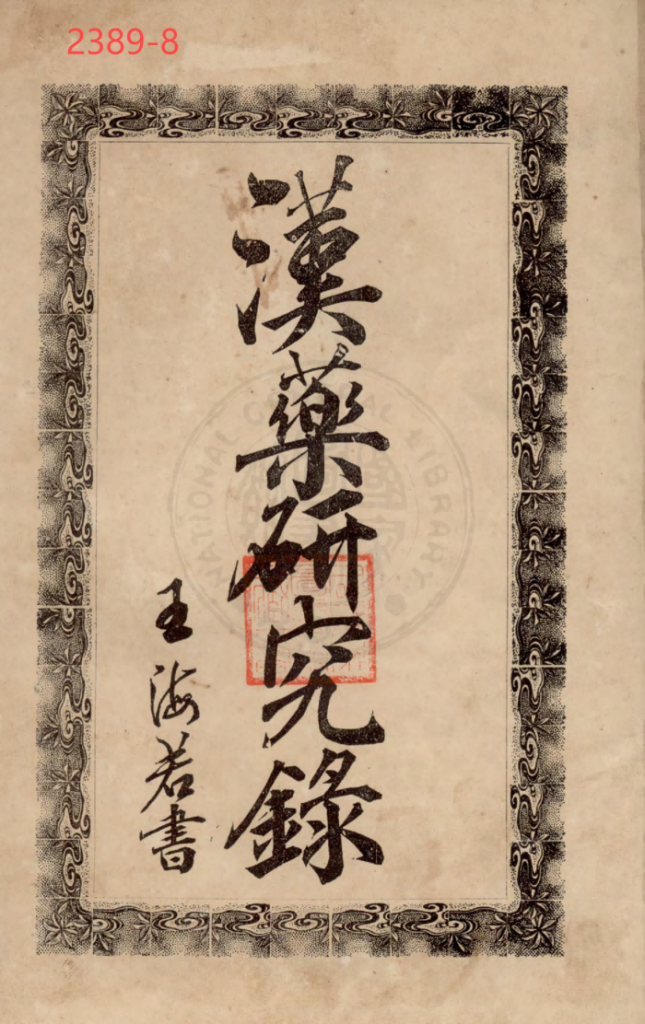 2389-8
漢藥研究錄
王海若書
NATIONAL CENTRAL LIBRARY